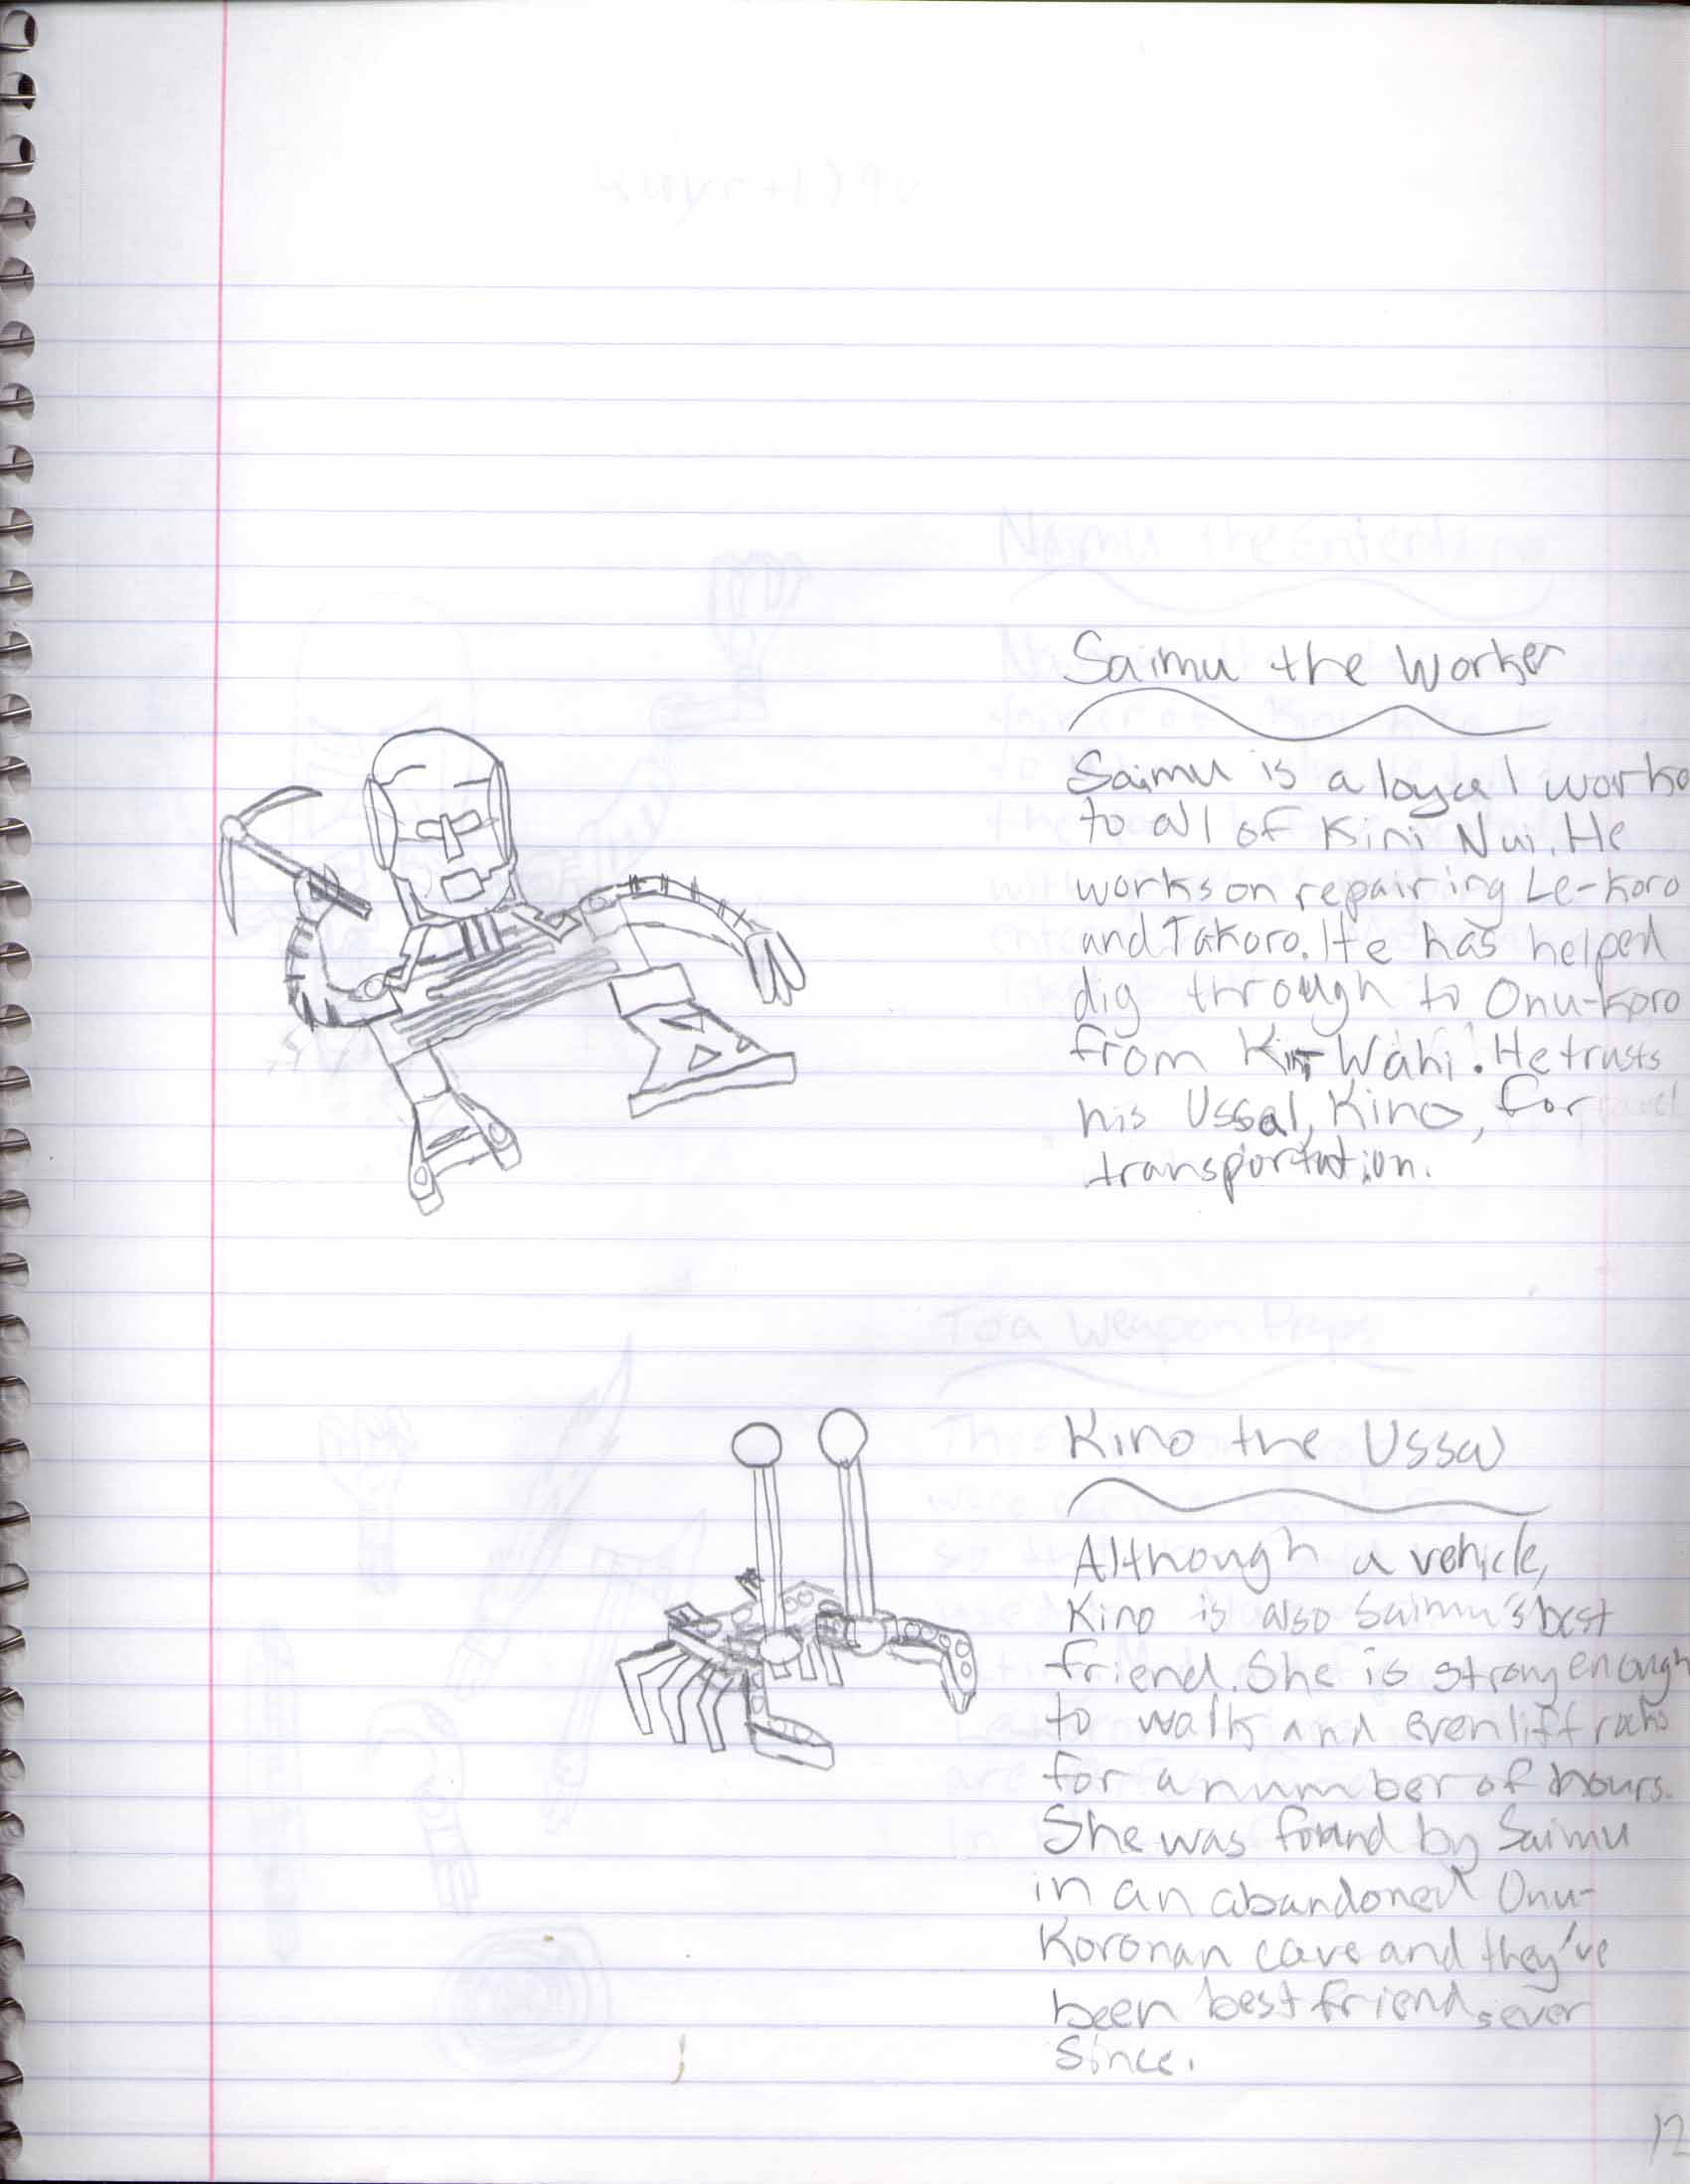 Saimu the Worker
Saimu is a loyal worke
to all of Kini Nui. He
works on repairing Le-Koro
and Takoro. He has helped
dig through to Onu-Koro
from Wahi. He trusts
his Ussal, Kino, for
transportation.
Toa Weapon Props
Kino the Ussal
Although a vehicle,
Kino is also Saimu's best
friend. She is strong enough
to walk and even lift rocks
for a number of hours.
She was found by Saimu
in an abandoned Onu-
Koronan cave and they've
been best friends ever
since.
12